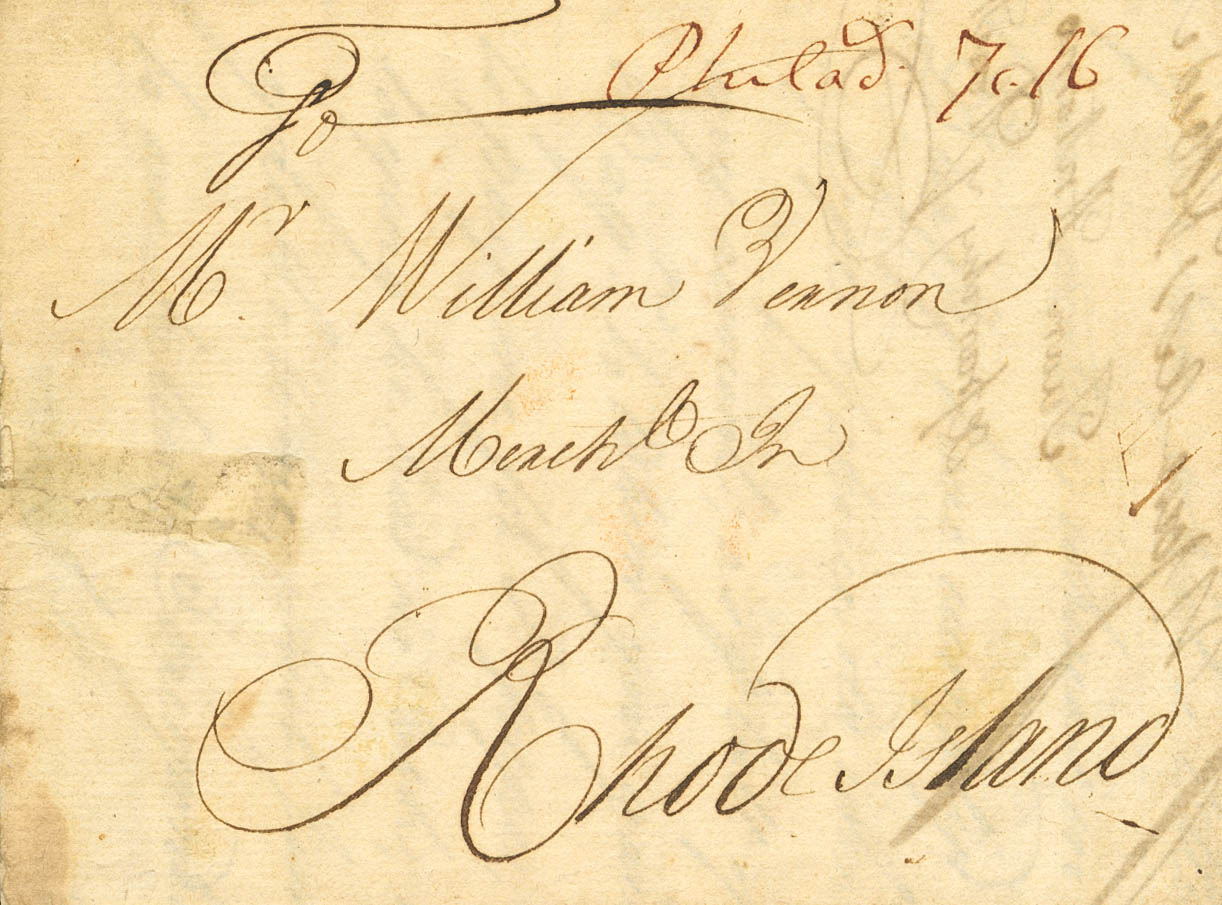 Philadª. 7..16
To
Mr. William Vernon
Mercht. In
Rhode Island